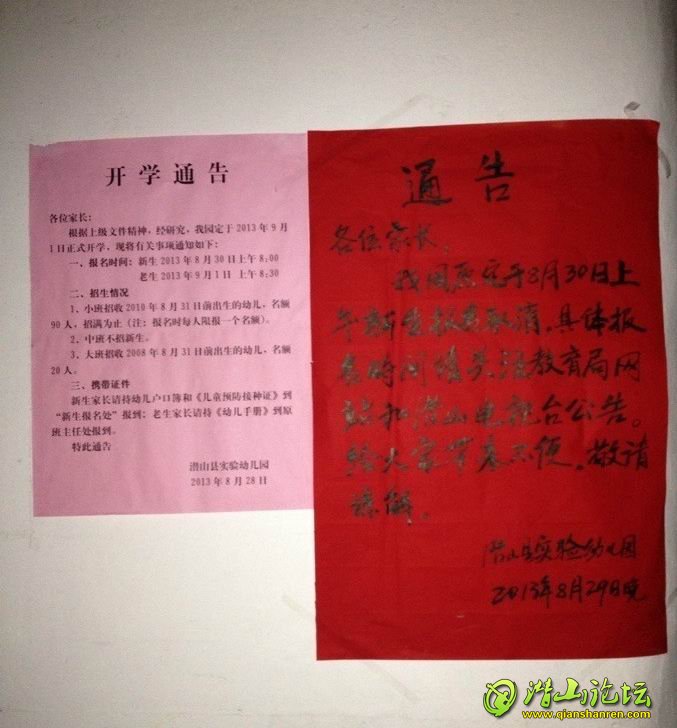 开学通告
各位家长：
根据上级文件精神，经研究，我园定于2013年9月
1日正式开学，现将有关事项通知如下：
一、报名时间：新生2013年8月30日上午8:00
老生2013年9月1日 上午8:30
二、招生情况
1、小班招收2010年8月31日前出生的幼儿，名额
90人，招满为止（注：报名时每人限报一个名额）。
2、中班不招新生。
3、大班招收2008年8月31日前出生的幼儿，名额
20人。
三、携带证件
新生家长请持幼儿户口簿和《儿童预防接种证》到
“新生报名处”报到；老生家长请持《幼儿手册》到原
班主任处报到。
特此通告
潜山县实验幼儿园
2013年8月28日
通告
各位家长，
我园原定于8月30日上
午新生报名取消，具体报
名时间请关注教育局网
站和潜山电视台公告。
给大家带来不便，敬请
谅解。
潜山县实验幼儿园
2013年8月29日晚
潜山论坛
www.qianshanren.com